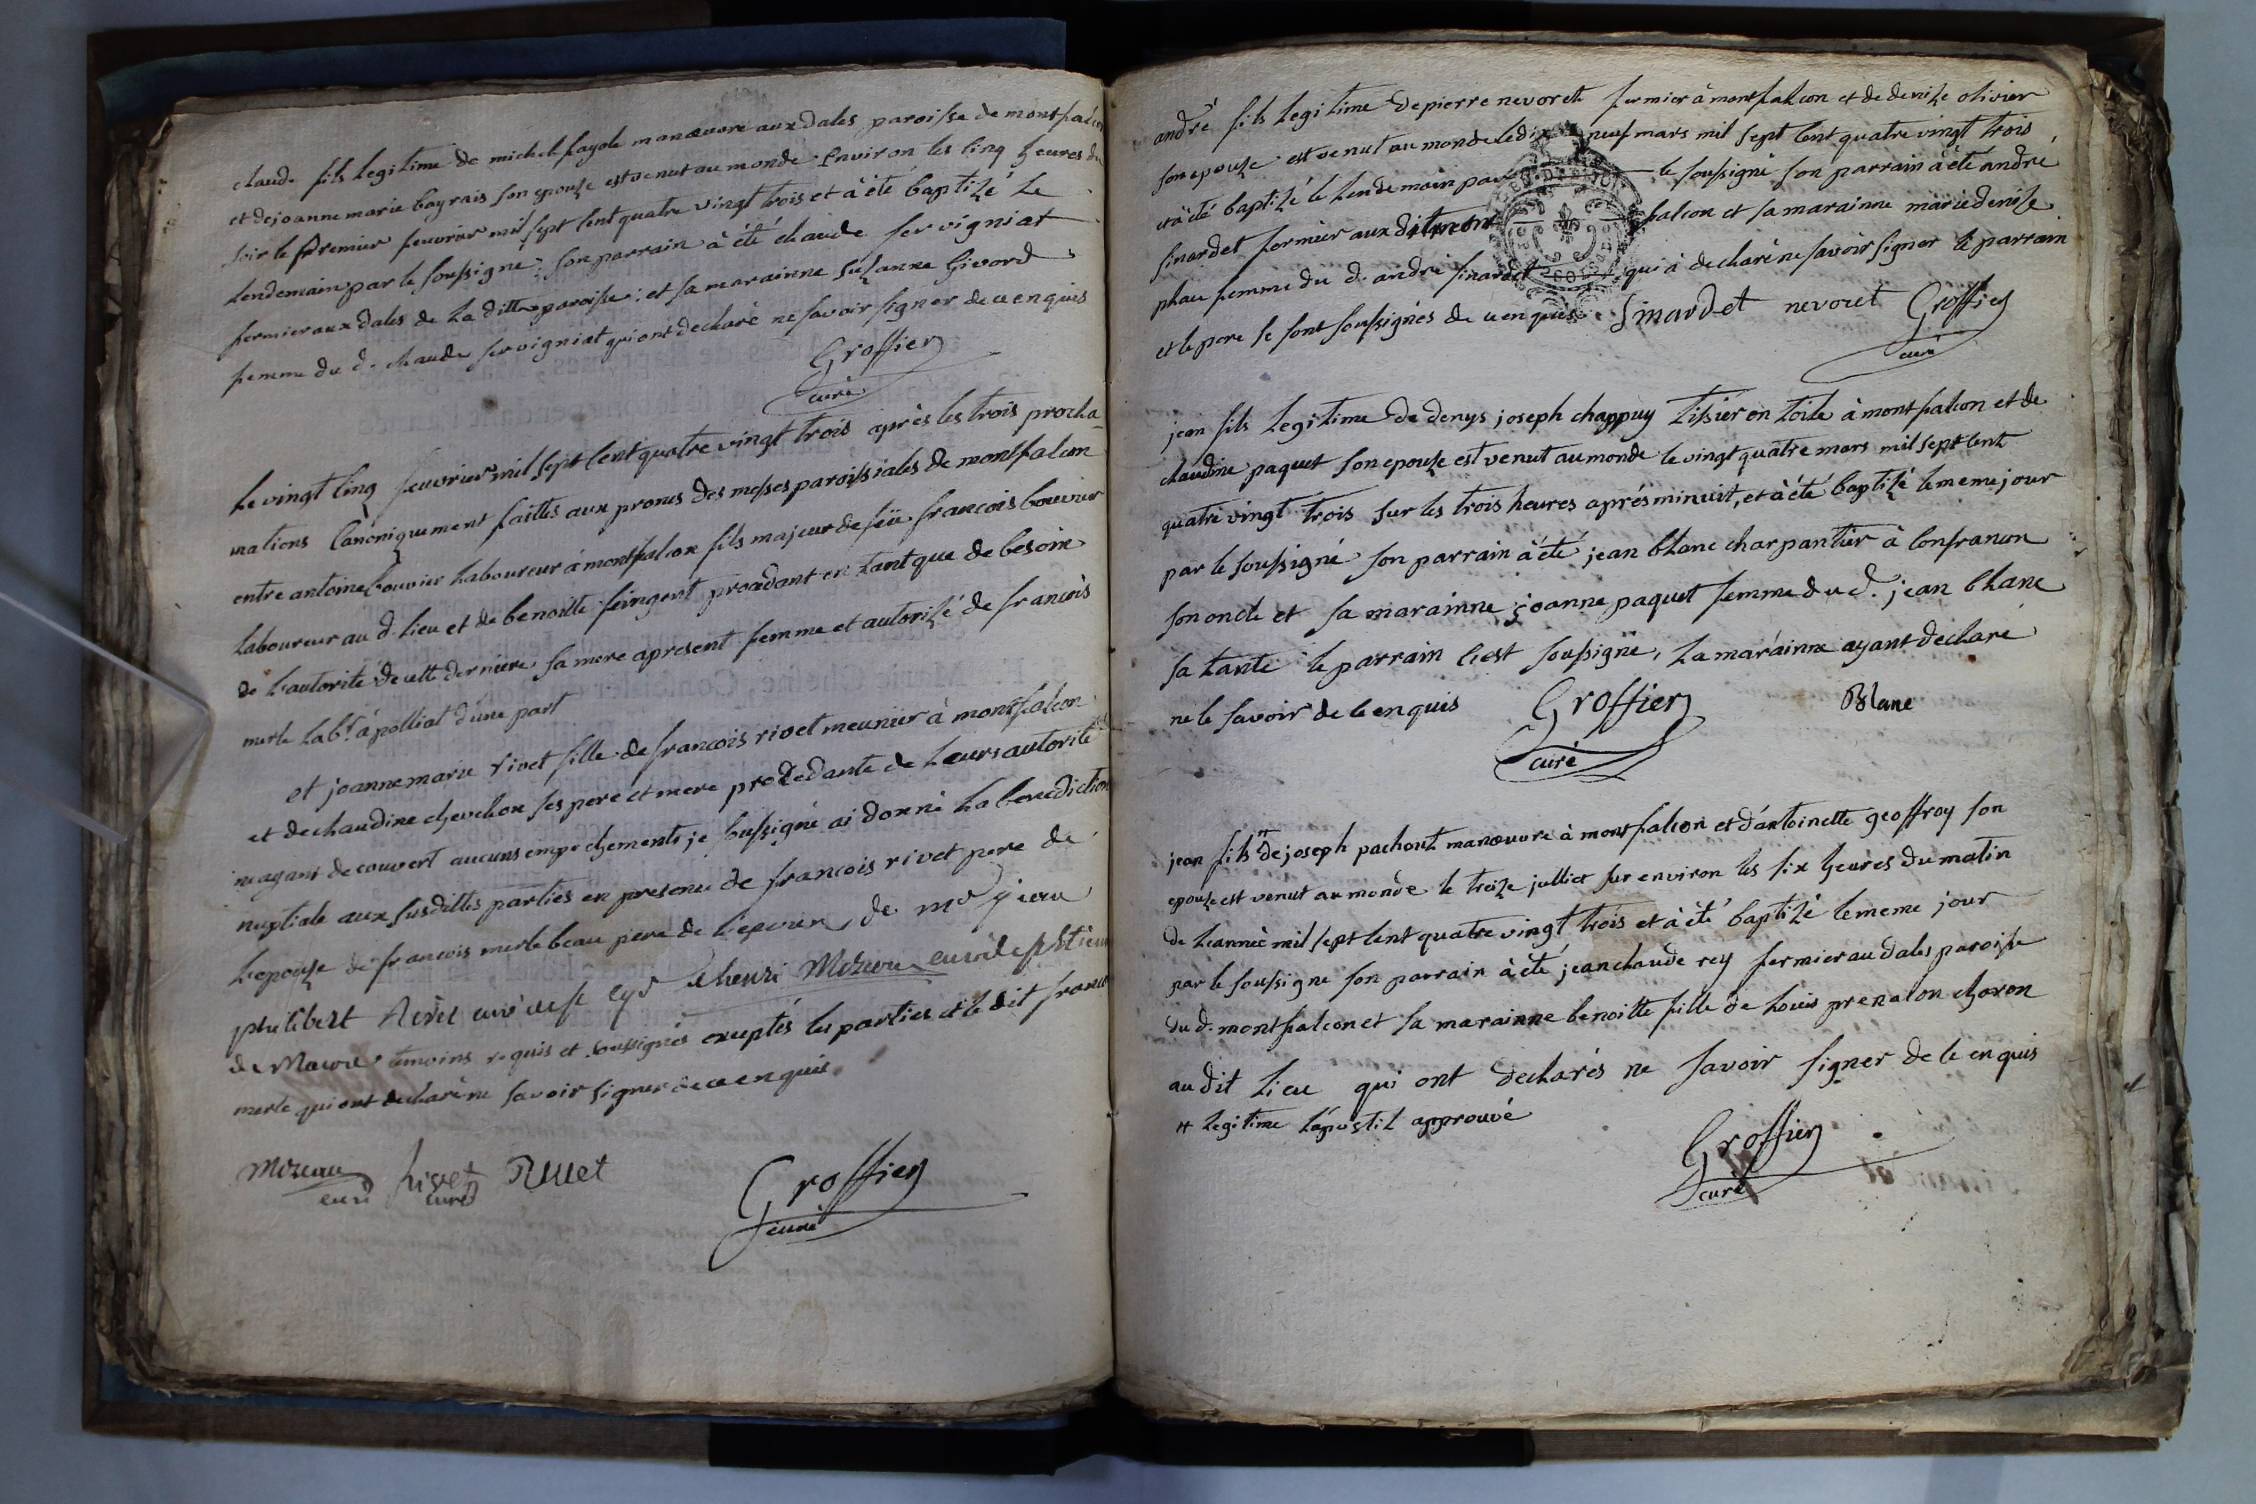 claude fils legitime de michel fayole manœuvre aux dales paroisse de montfalcon
et de joanne marie bayrais son epouze est venut au monde environ les cinq heures du
soir le premier feuvrier mil sept cent quatre vingt trois et à été baptizé le
lendemain par le soussigné ; son parrain à été claude servigniat
fermier aux dales de la ditte paroisse ; et sa marainne suzanne Givord
femme du d. claude servigniat qui ont declaré ne savoir signer de ce enquis
Groffier
curé
le vingt cinq feuvrier mil sept cent quatre vingt trois après les trois procla-
mations canoniquement faittes aux prones des messes paroissiales de montfalcon
entre antoine bouvier laboureur à montfalcon fils majeur de feü francois bouvier
laboureur au d. lieu et de benoitte feingent procedant en tant que de besoin
de l'autorité de cette derniere sa mere apresent femme et autorizé de francois
merle lab.r à polliat d'une part
et joanne marie rivet fille de francois rivet meunier à montfalcon
et de claudine chevelon ses pere et mere procedante de leurs autorité
n'ayant decouvert aucuns empechements je soussigné ai donné la benediction
nuptiale aux susdittes parties en presence de francois rivet pere de
l'epouze de francois merle beau pere de l'epoux de
philibert curé henri Mizeau curé de st
de temoins requis et soussignés exceptés les parties et le dit francois
merle qui ont declaré ne savoir signer de ce enquis
Mizeau
curé
rivet
curé
Rivet
Groffier
curé
andré fils legitime de pierre nevoret fermier à montfalcon et de denize olivier
son epouze est venut au monde le dix neuf mars mil sept cent quatre vingt trois
et à été baptizé le lendemain par le soussigné son parrain à été andré
sinardet fermier aux dit mont falcon et sa marainne marie denize
femme du d. andré sinardet qui à declaré ne savoir signer le parrain
et le pere se sont soussignés de ce enquis
Sinardet nevoret Groffier
curé
jean fils legitime de denys joseph chappuy tisier en toile à montfalcon et de
claudine paquet son epouze est venut au monde le vingt quatre mars mil sept cent
quatre vingt trois sur les trois heures après minuit, et à été baptizé le meme jour
par le soussigné son parrain à été jean blanc charpantier à confrancon
son oncle et sa marainne joanne paquet femme du d. jean blanc
sa tante le parrain c'est soussigné, la marainne ayant declaré
ne le savoir de ce enquis Groffier Blanc
curé
jean fils # de joseph pachout manœuvre à montfalcon et d'antoinette geoffroy son
epouze est venut au monde le treize julliet sur environ les six heures du matin
de l'année mil sept cent quatre vingt trois et à été baptizé le meme jour
par le soussigné son parrain à été jean claude rey fermier au dales paroisse
du d. montfalcon et sa marainne benoitte fille de louis prenalon charon
au dit lieu qui ont declarés ne savoir signer de ce enquis
# legitime l'apostil approuvé
Groffier
curé